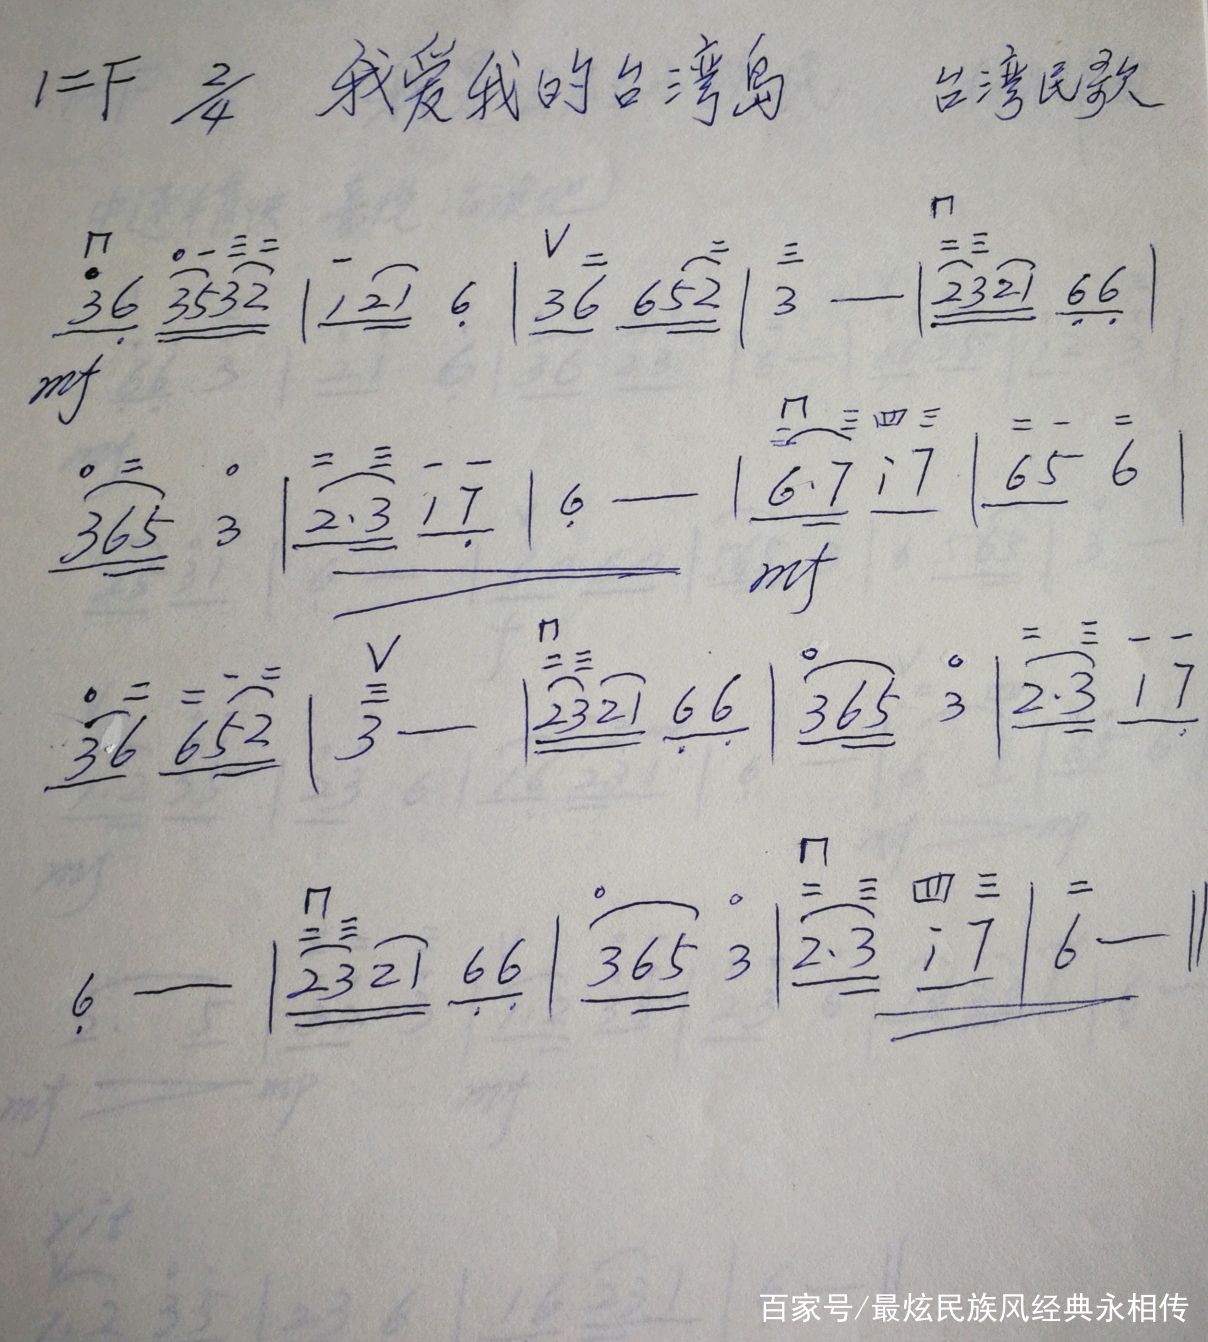 1=F 2/4 我爱我的台湾岛 台湾民歌
36 3532 | 121 6 | 36 652 | 3 — | 2321 66 |
mf
365 3 | 2·3 17 | 6 — | 6·7 i7 | 65 6 |
mf
36 652 | 3 — | 2321 66 | 365 3 | 2·3 17
6 — | 2321 66 | 365 3 | 2·3 i7 | 6 — ‖
百家号/最炫民族风经典永相传